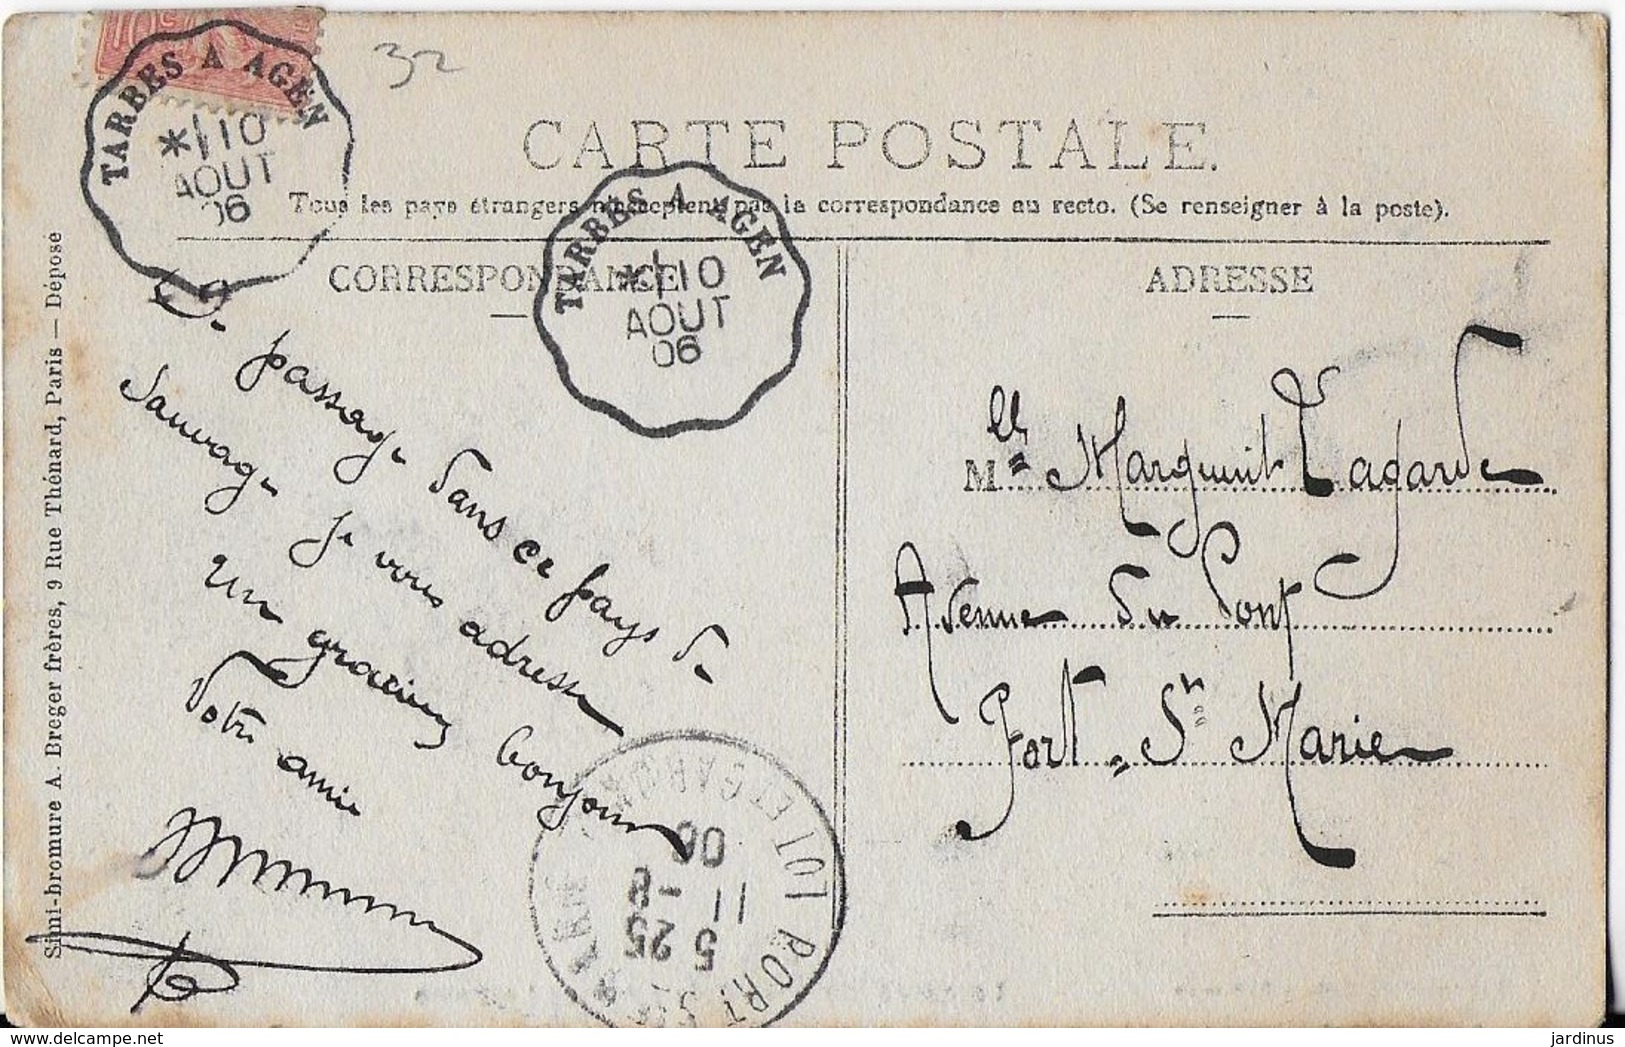 32
TARBES A AGEN
*|10
AOUT
06
CARTE POSTALE.
Tous les pays étrangers n'acceptent pas la correspondance au recto. (Se renseigner à la poste).
TARBES A AGEN
*|10
AOUT
06
CORRESPONDANCE
De passage dans ce pays de
Sauvage je vous adresse
un gracieux bonjour
Votre amie
ADRESSE
Mlle Marguerite Lagarde
Avenue du Pont
Port-Ste Marie
PORT STE MARIE LOT ET GARONNE
5 25
11 -8
06
Simi-bromure A. Breger frères, 9 Rue Thénard, Paris — Déposé
jardinus